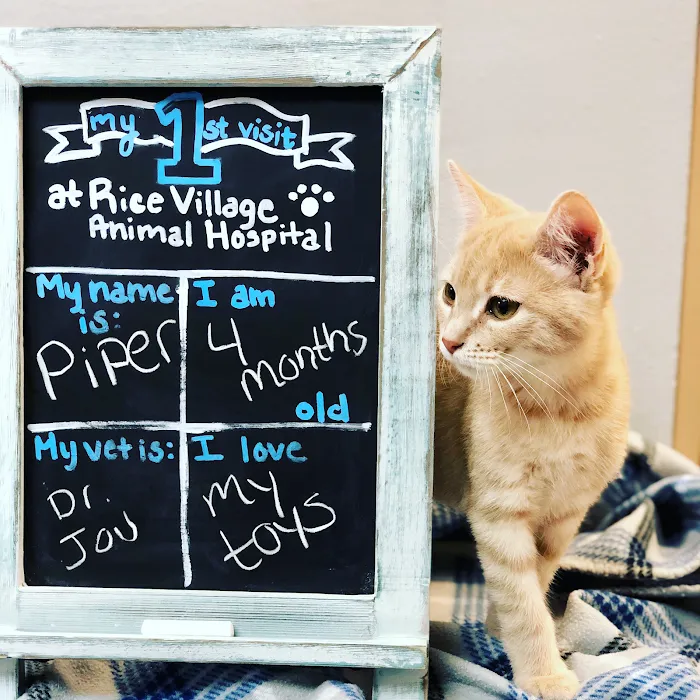 my 1st visit
at Rice Village
Animal Hospital
My name
is:
Piper
I am
4
months
old
My vet is:
Dr.
Jou
I love
my
toys